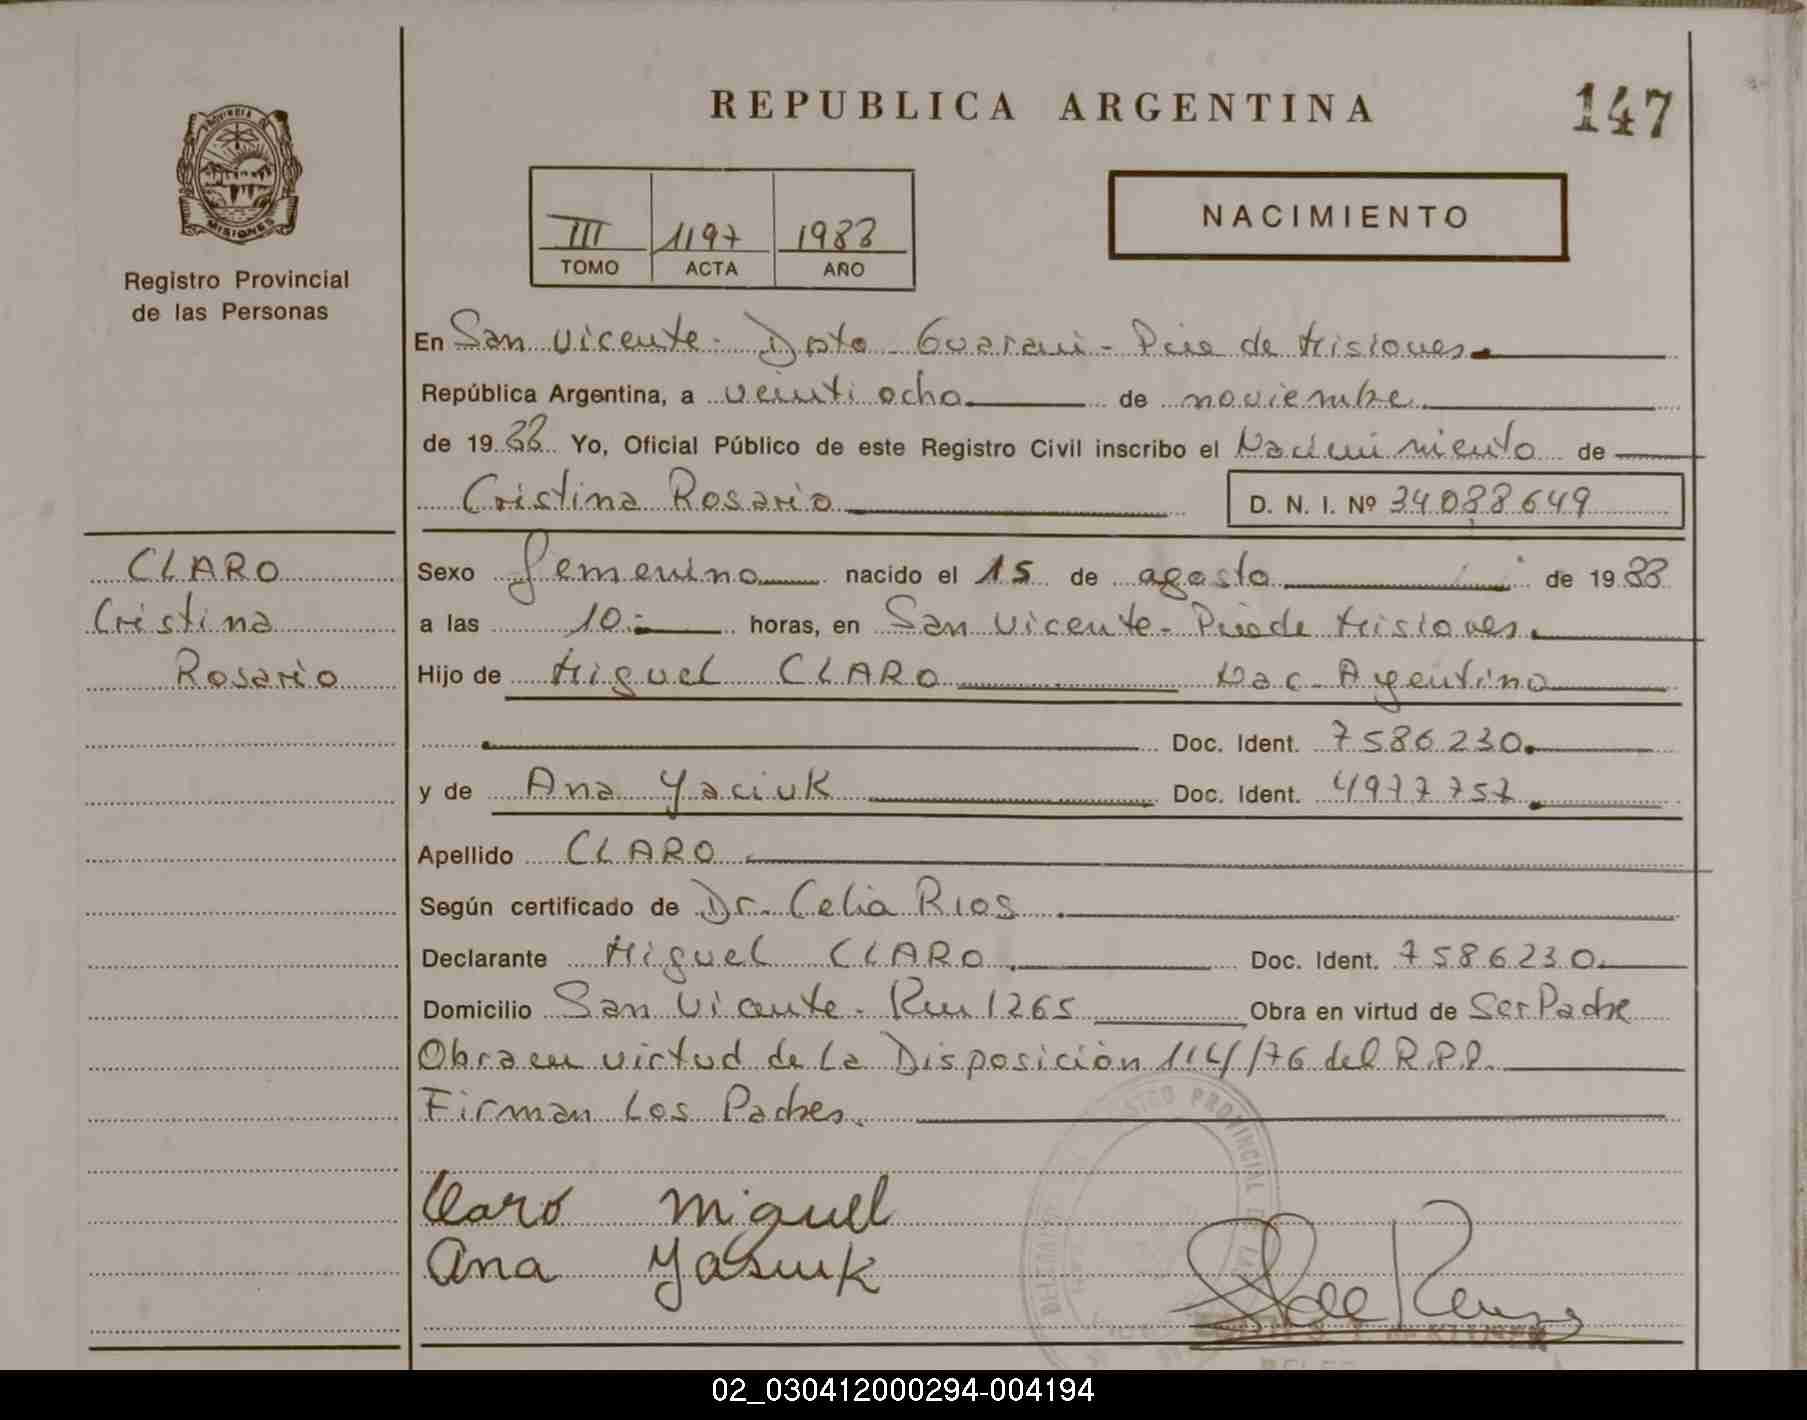 REPUBLICA ARGENTINA
147
PROVINCIA DE
MISIONES
Registro Provincial
de las Personas
III 1197 1988
TOMO ACTA AÑO
NACIMIENTO
En San Vicente - Dpto Guarani - Pcia de Misiones
República Argentina, a veintiocho de noviembre
de 1988 Yo, Oficial Público de este Registro Civil inscribo el Nacimiento de
Cristina Rosario D. N. I. Nº 34088649
CLARO
Cristina
Rosario
Sexo femenino nacido el 15 de agosto de 1988
a las 10.- horas, en San Vicente - Pcia de Misiones.
Hijo de Miguel CLARO Nac. Argentino
Doc. Ident. 7586230.
y de Ana Yaciuk Doc. Ident. 4977757.
Apellido CLARO
Según certificado de Dr. Celia Rios.
Declarante Miguel CLARO. Doc. Ident. 7586230.
Domicilio San Vicente - Km 1265 Obra en virtud de Ser Padre
Obra en virtud de La Disposición 114/76 del R.P.P.
Firman Los Padres.
Claro Miguel
Ana Yasiuk
REGISTRO PROVINCIAL DE LAS
02_030412000294-004194